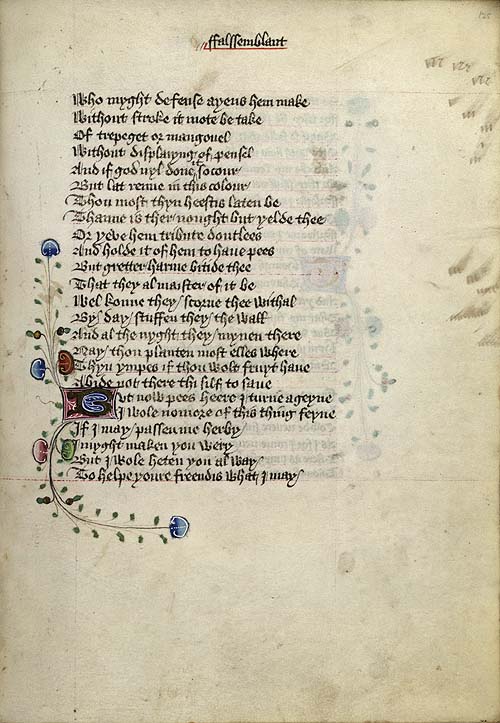 ffalssemblant
Who myght defense ayens hem make
Without stroke it mote be take
Of trepeget or mangonel
Without displaiyng of pensel
And if god nyl done it socour
But lat renne in this colour
Thou most thyn heestis laten be
Thanne is ther nought but yelde thee
Or yeve hem tribute doutlees
And holde it of hem to have pees
But gretter harme bitide thee
That they al maister of it be
Wel konne they scorne thee withal
By day stuffen they the wall
And al the nyght they mynen there
Nay thou planten most elles where
Thyn ympes if thou wolt fruyt have
Abide not there thi silf to save
But now pees heere I turne ageyne
I wole nomore of this thing feyne
If I may passen me herby
I myght maken you wery
But I wole heten you al way
To helpe youre freendis what I may